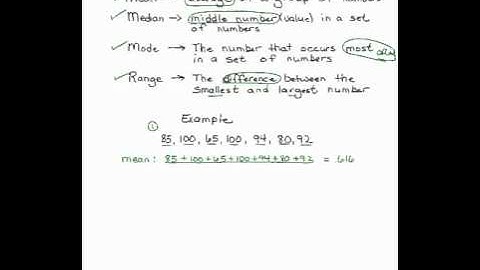 ✓ Median → middle number (value) in a set
of numbers
✓ Mode → The number that occurs most often
in a set of numbers
✓ Range → The difference between the
smallest and largest number
Example
①
85, 100, 65, 100, 94, 80, 92
mean: 85+100+65+100+94+80+92 = 616